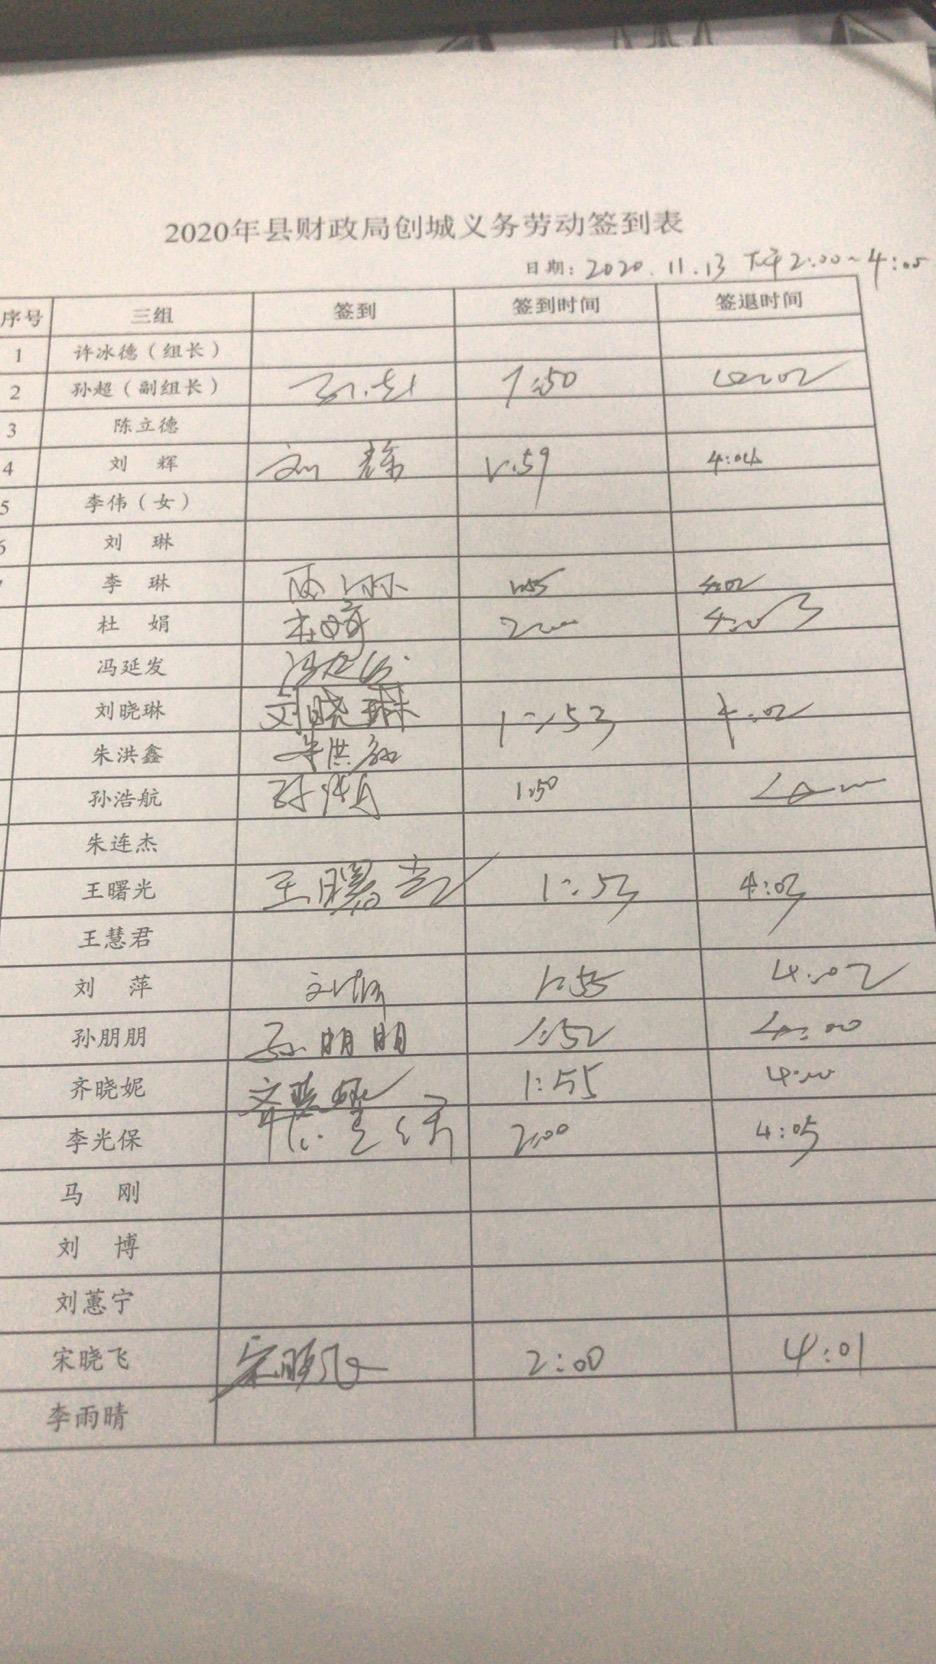 2020年县财政局创城义务劳动签到表
日期：2020.11.13 下午2:00~4:05
序号 三组 签到 签到时间 签退时间
1 许冰德（组长）
2 孙超（副组长） 1:50
3 陈立德
4 刘 辉 1:59 4:04
5 李伟（女）
6 刘 琳
李 琳 1:55 4:02
杜 娟 2:00 4:03
冯延发 冯延发
刘晓琳 刘晓琳 1:53 4:02
朱洪鑫 朱洪鑫
孙浩航 1:50
朱连杰
王曙光 王曙光 1:53 4:03
王慧君
刘 萍 1:55 4:02
孙朋朋 孙朋朋 1:52 4:00
齐晓妮 1:55 4:00
李光保 2:00 4:05
马 刚
刘 博
刘蕙宁
宋晓飞 宋晓飞 2:00 4:01
李雨晴